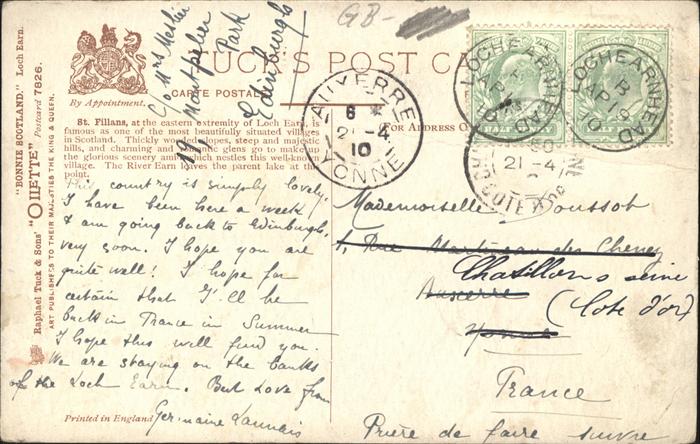 "BONNIE SCOTLAND." Loch Earn.
Raphael Tuck & Sons' "OILETTE" Postcard 7826.
ART PUBLISHERS TO THEIR MAJESTIES THE KING & QUEEN.
By Appointment.
TUCK'S POST CA
CARTE POSTALE
FOR ADDRESS O
GB-
St. Fillans, at the eastern extremity of Loch Earn, is
famous as one of the most beautifully situated villages
in Scotland. Thickly wooded slopes, steep and majestic
hills, and charming and romantic glens go to make up
the glorious scenery amid which nestles this well-known
village. The River Earn leaves the parent lake at the
point.
c/o Mrs
Park
Edinburgh
This country is simply lovely.
I have been here a week
& am going back to Edinburgh
very soon. I hope you are
quite well! I hope for
certain that I'll be
back in France in Summer
I hope this will find you.
We are staying on the banks
of the Loch Earn. Best Love from
Germaine
Printed in England
AUXERRE
6 *
21-4
10
YONNE
LOCHEARNHEAD
B
AP 19
10
LOCHEARNHEAD
AP
10
HALF
21-4
Mademoiselle
1, Rue des
Chatillon s seine
Auxerre
(Cote d'or)
Yonne
France
Prière de faire suivre